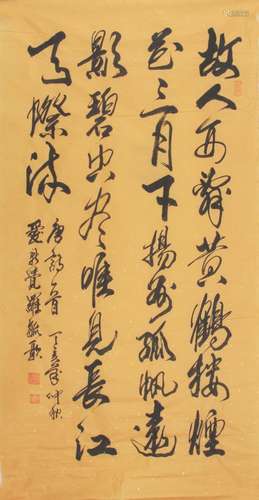 故人西辭黄鶴樓煙
花三月下揚州孤帆遠
影碧空盡唯見長江
天際流
唐詩一首 丁亥年仲秋
愛新覺羅毓